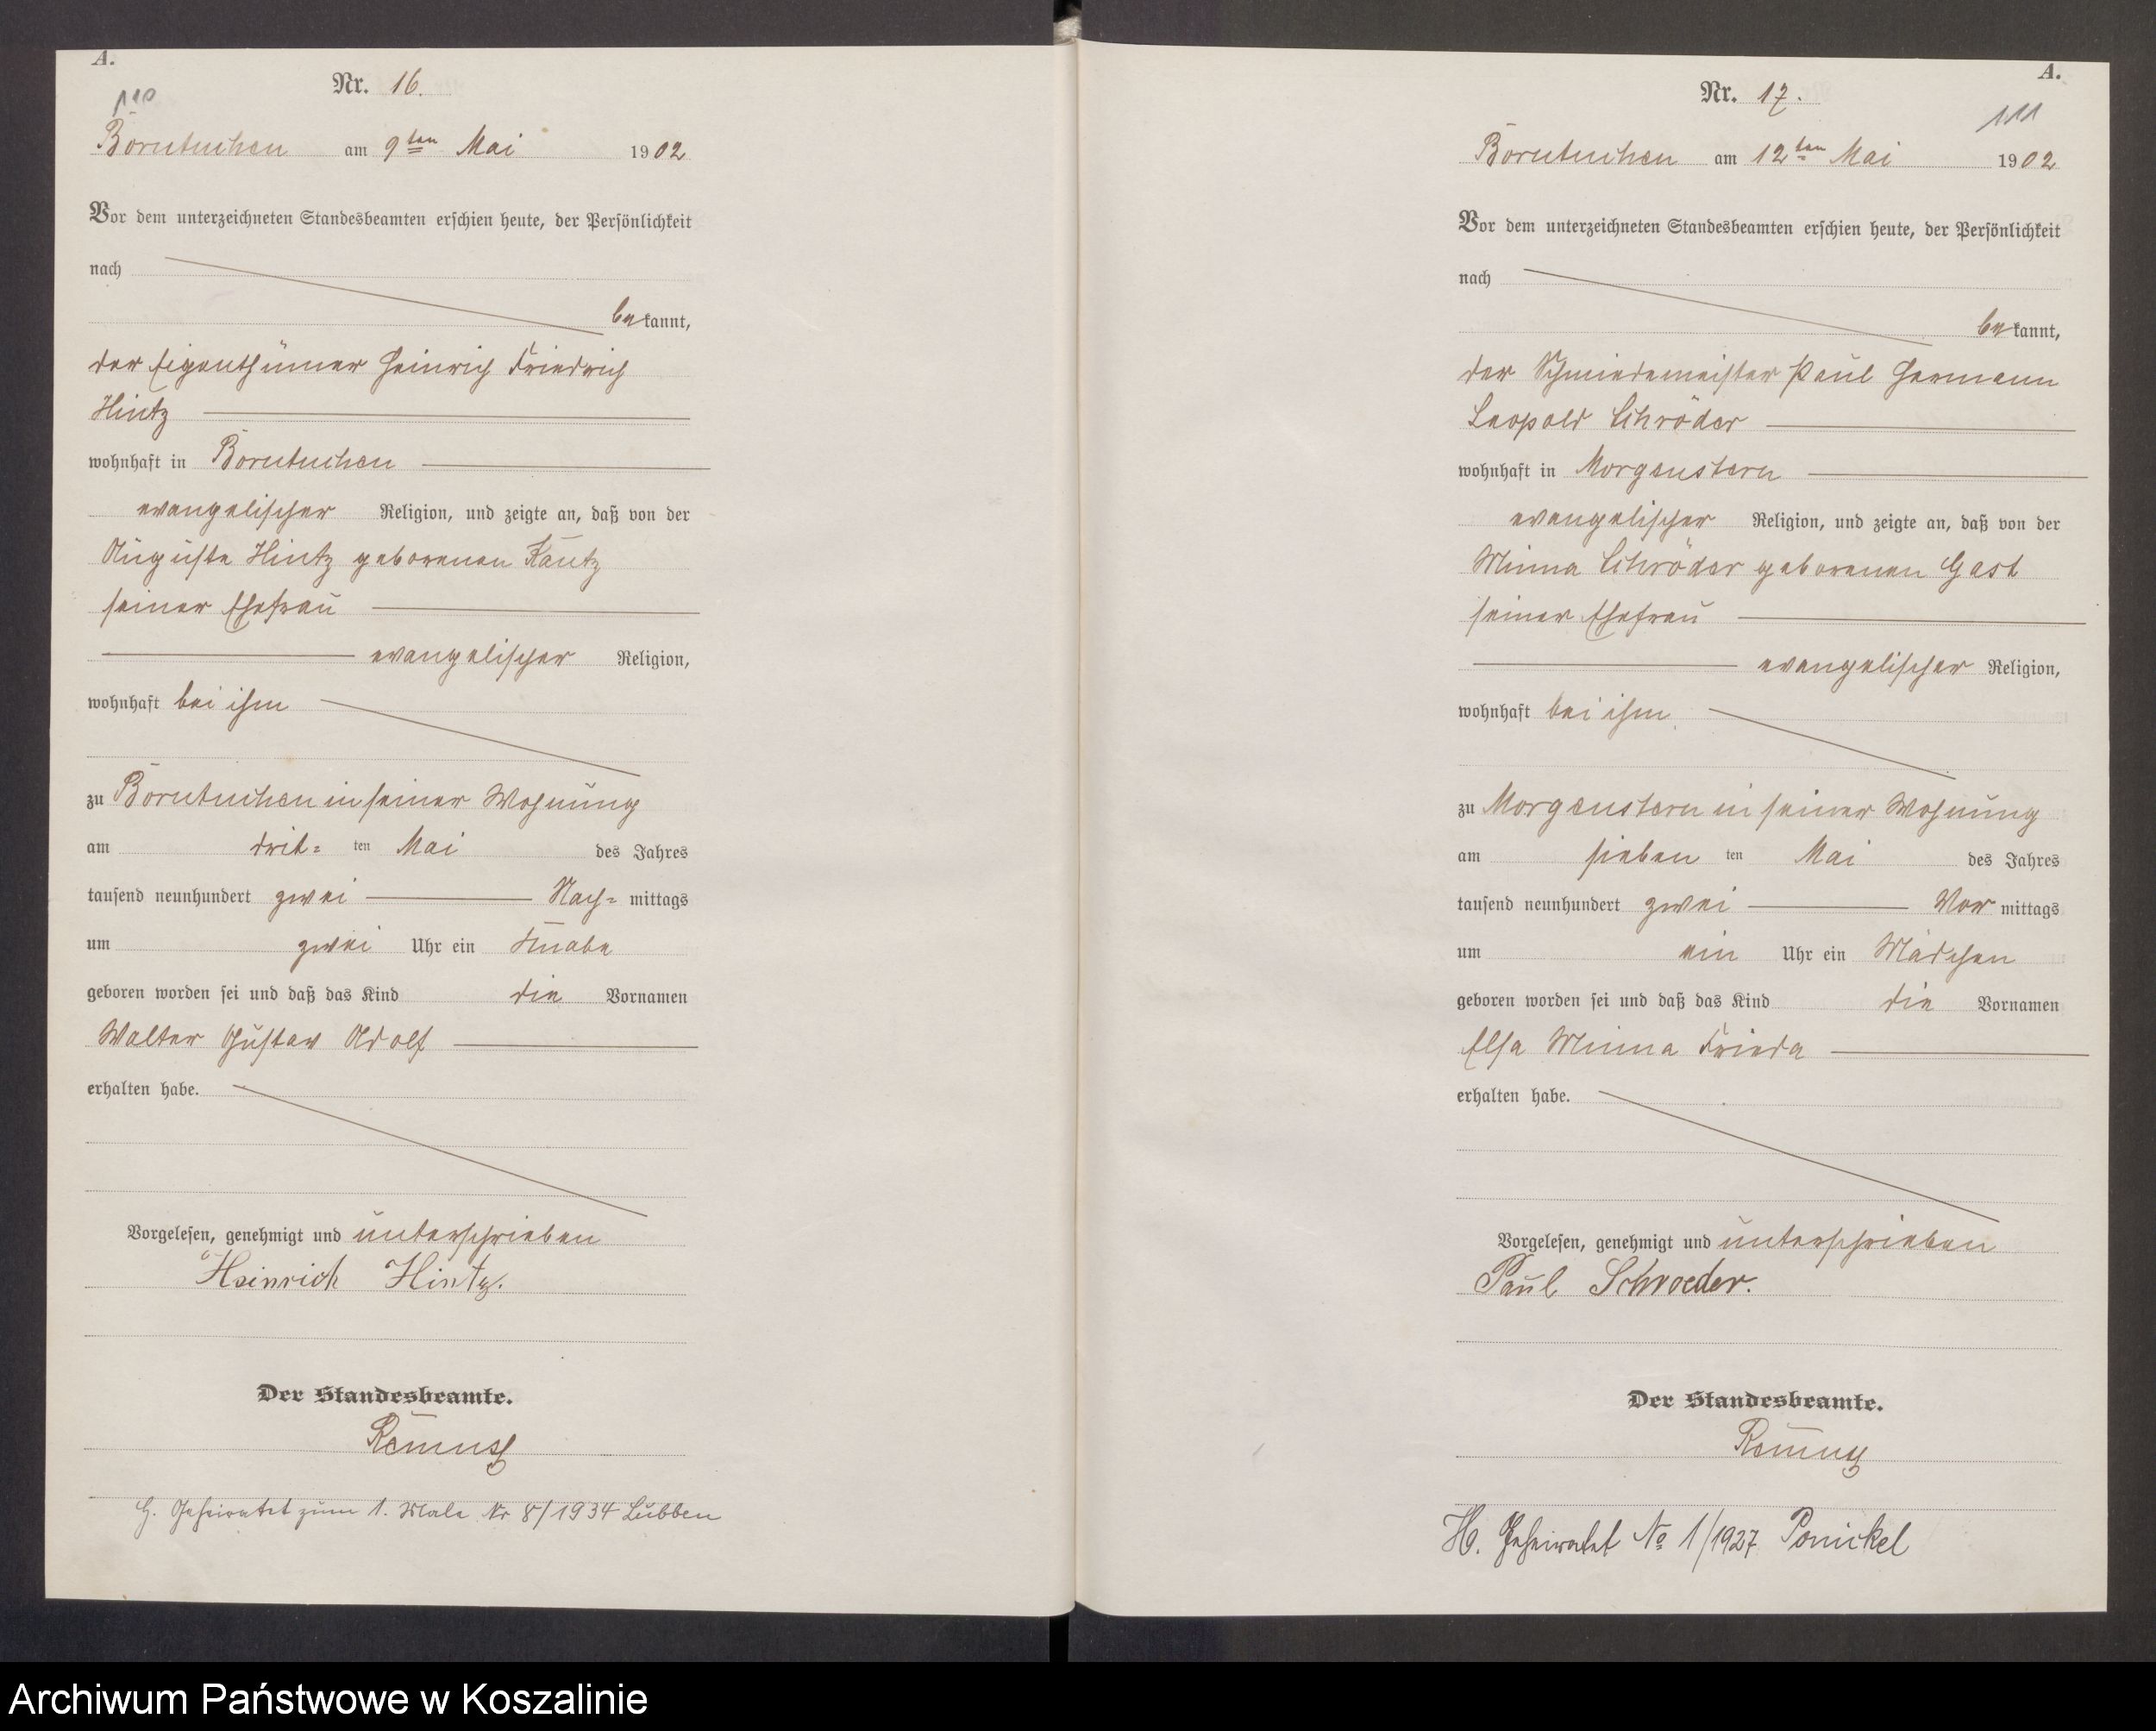 A.
110
Nr. 16.
Borntuchen am 9ten Mai 1902
Vor dem unterzeichneten Standesbeamten erschien heute, der Persönlichkeit
nach
bekannt,
der Eigenthümer Heinrich Friedrich
Hintz
wohnhaft in Borntuchen
evangelischer Religion, und zeigte an, daß von der
Auguste Hintz geborenen Kautz
seiner Ehefrau
evangelischer Religion,
wohnhaft bei ihm
zu Borntuchen in seiner Wohnung
am drit= ten Mai des Jahres
tausend neunhundert zwei Nach= mittags
um zwei Uhr ein Knabe
geboren worden sei und daß das Kind die Vornamen
Walter Gustav Adolf
erhalten habe.
Vorgelesen, genehmigt und unterschrieben
Heinrich Hintz.
Der Standesbeamte.
Remus
H. Geheiratet zum 1. Male Nr 8/1934 Lübben
A.
111
Nr. 17.
Borntuchen am 12ten Mai 1902
Vor dem unterzeichneten Standesbeamten erschien heute, der Persönlichkeit
nach
bekannt,
der Schmiedemeister Paul Hermann
Leopold Schröder
wohnhaft in Morgenstern
evangelischer Religion, und zeigte an, daß von der
Minna Schröder geborenen Gast
seiner Ehefrau
evangelischer Religion,
wohnhaft bei ihm
zu Morgenstern in seiner Wohnung
am sieben ten Mai des Jahres
tausend neunhundert zwei Vor mittags
um ein Uhr ein Mädchen
geboren worden sei und daß das Kind die Vornamen
Elsa Minna Frieda
erhalten habe.
Vorgelesen, genehmigt und unterschrieben
Paul Schroeder.
Der Standesbeamte.
Remus
H. Geheiratet No 1/1927 Ponickel
Archiwum Państwowe w Koszalinie